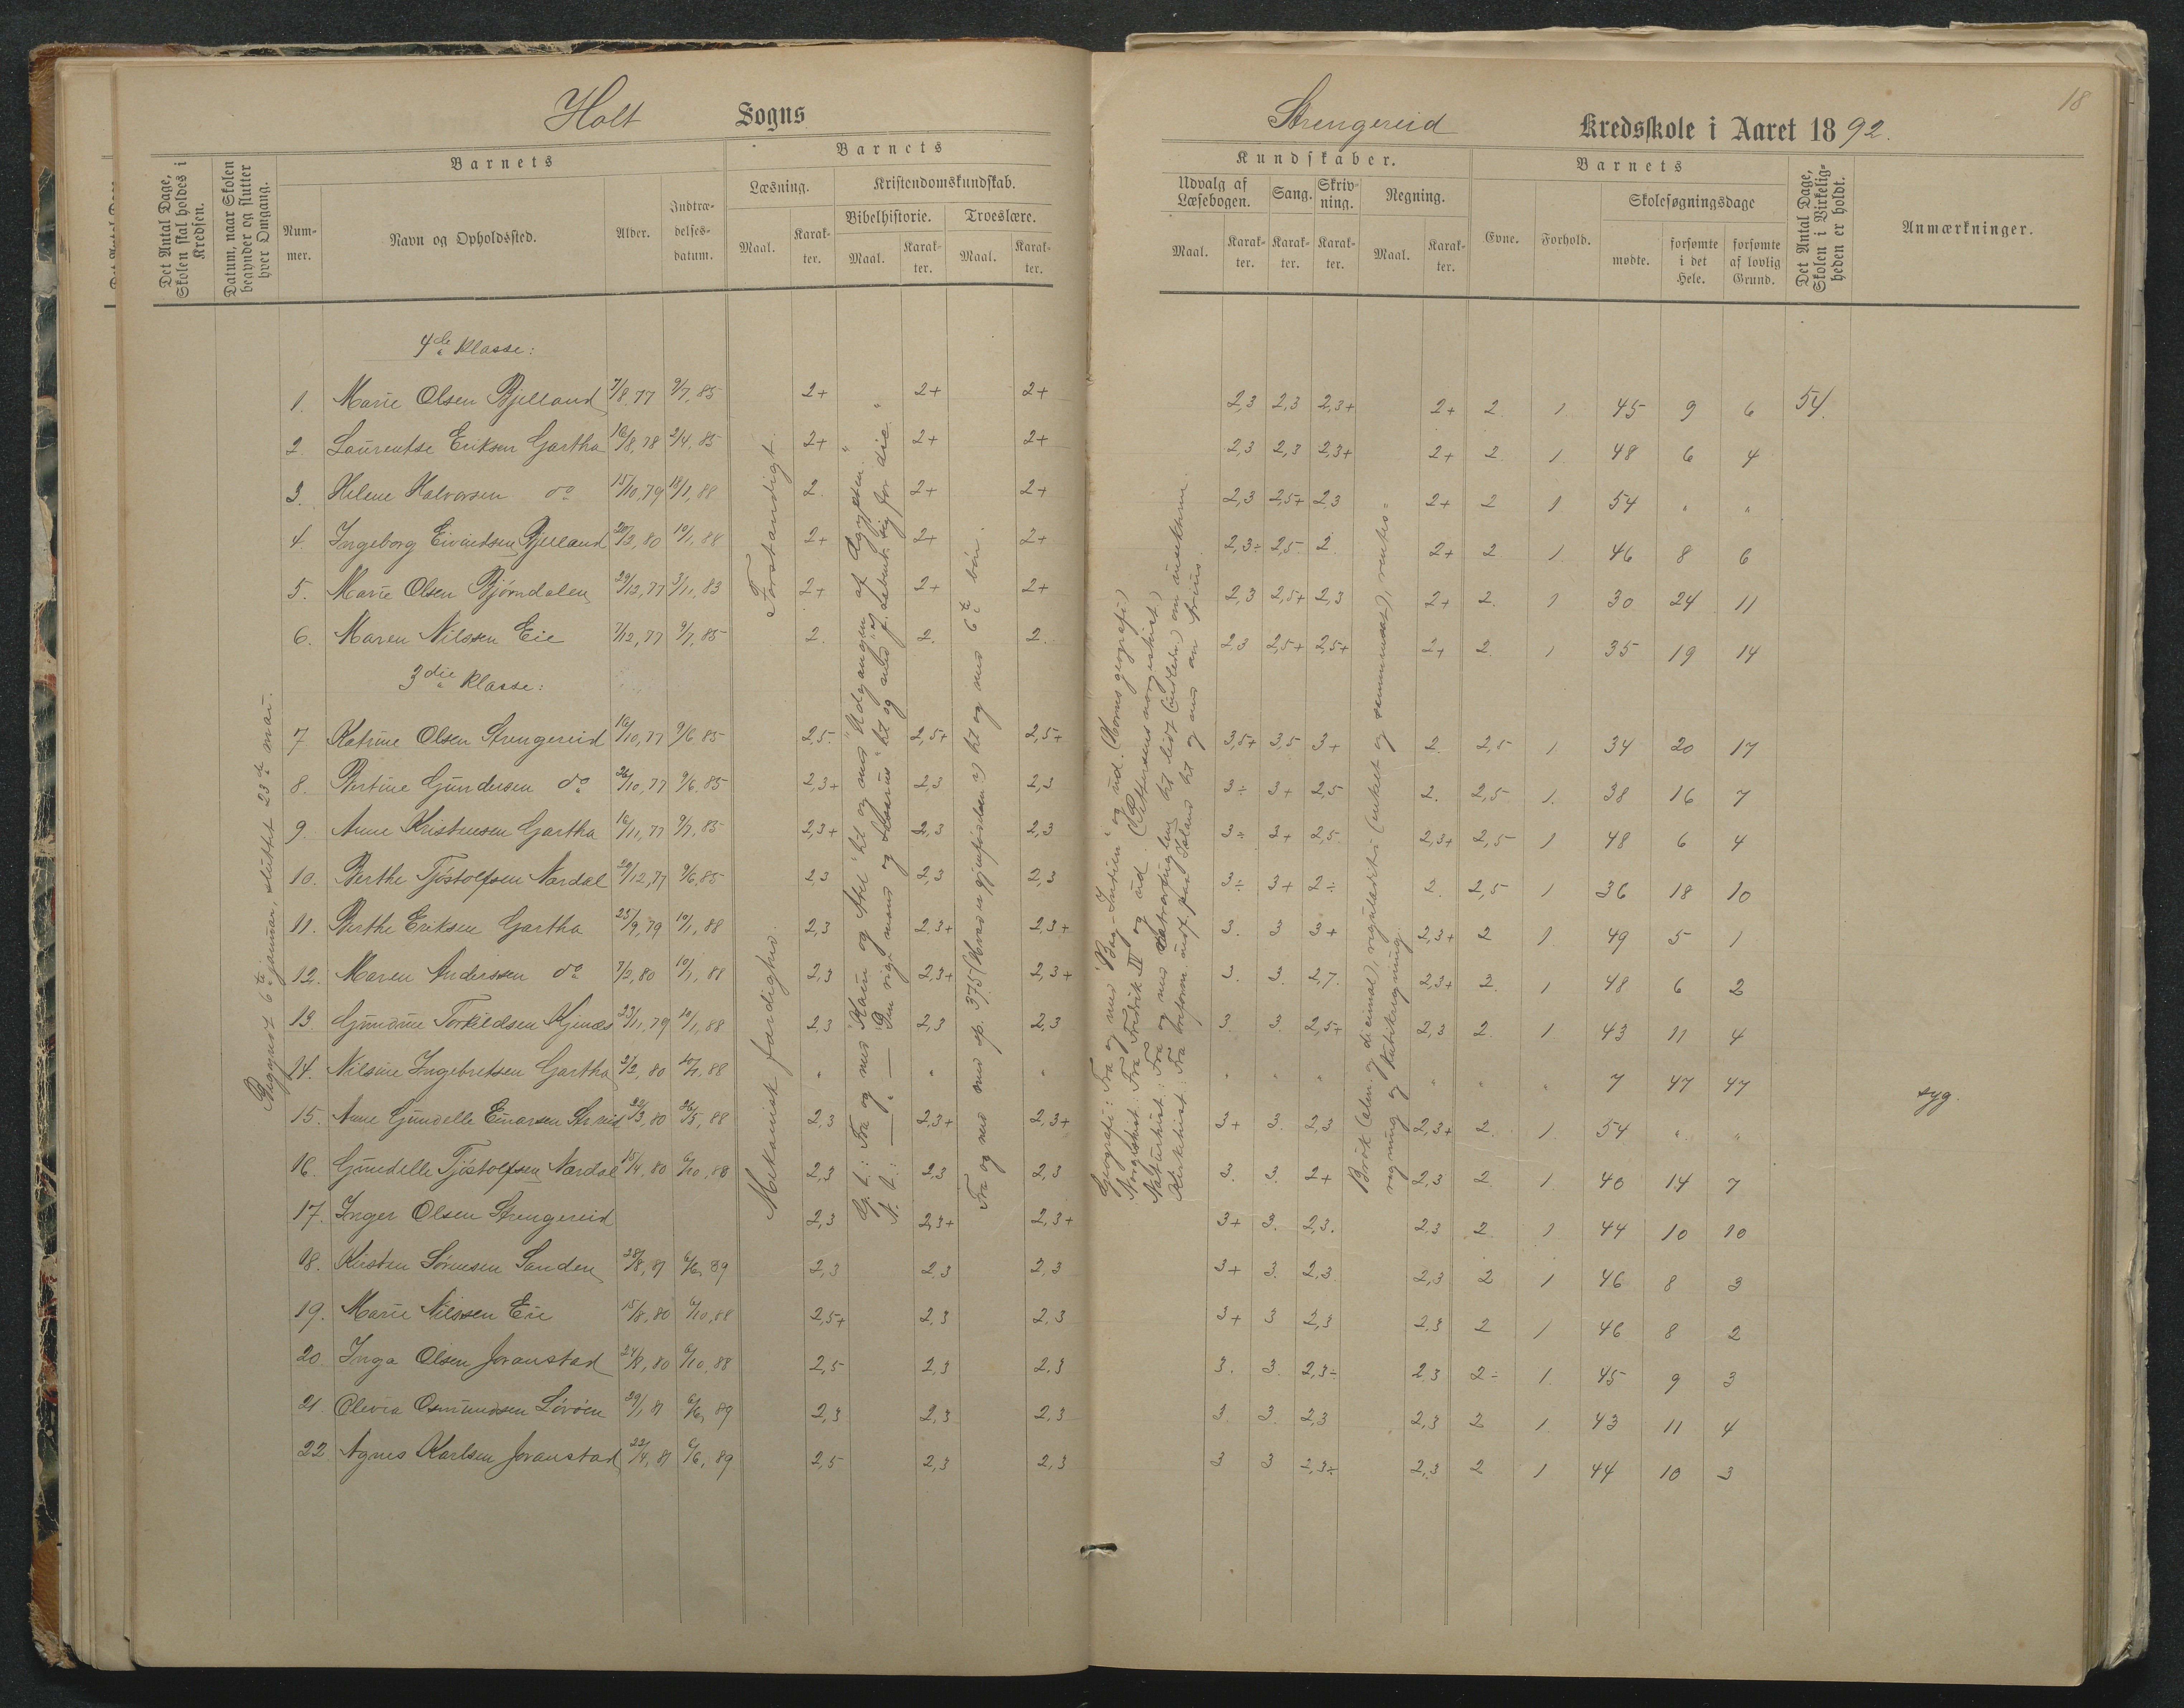 Holt Sogns
Strengereid Kredsskole i Aaret 1892.
18
Det Antal Dage, Skolen skal holdes i Kredsen.
Datum, naar Skolen begynder og slutter hver Omgang.
Barnets
Nummer.
Navn og Opholdssted.
Alder.
Indtrædelsesdatum.
Barnets
Læsning.
Maal.
Karakter.
Kristendomskundskab.
Bibelhistorie.
Maal.
Karakter.
Troeslære.
Maal.
Karakter.
Kundskaber.
Udvalg af Læsebogen.
Maal.
Karakter.
Sang.
Karakter.
Skrivning.
Karakter.
Regning.
Maal.
Karakter.
Barnets
Evne.
Forhold.
Skolesøgningsdage
mødte.
forsømte i det Hele.
forsømte af lovlig Grund.
Det Antal Dage, Skolen i Virkeligheden er holdt.
Anmærkninger.
Begyndt 6te januar, sluttet 23de mai.
Forstandigt.
Mekanisk færdighed.
G. t.: Fra og med "Kain og Abel" til og med "Udgangen af Ægypten."
Fra og med sp. 375
Geografi: Fra og med "Bag-Indien" og ud.
Norgeshist.: Fra Fredrik IV og ud.
Brøk (alm. og decimal), reguladetri (enkelt og sammensat), rentesregning og kubikregning.
4de Klasse:
1. Marie Olsen Bjelland 7/8,77 9/7,85 2+ 2+ 2+ 2,3 2,3 2,3+ 2+ 2. 1. 45 9 6 54.
2. Laurentse Eriksen Gartha 16/8,78 2/4,85 2+ 2+ 2+ 2,3 2,3 2,3+ 2+ 2. 1. 48 6 4
3. Helene Halvorsen do 15/10,79 18/1,88 2. 2+ 2+ 2,3 2,5+ 2,3 2+ 2 1 54 " "
4. Ingeborg Eivindsen Bjelland 20/3,80 10/1,88 2+ 2+ 2+ 2,3÷ 2,5 2. 2+ 2 1. 46 8 6
5. Marie Olsen Bjørndalen 29/12,77 3/11,83 2+ 2+ 2+ 2,3 2,5+ 2,3 2+ 2. 1 30 24 11
6. Maren Nilssen Eie 7/12,77 9/7,85 2. 2. 2. 2,3 2,5+ 2,5+ 2+ 2. 1 35 19 14
3die Klasse:
7 Katrine Olsen Strengereid 16/10,77 9/6,85 2,5. 2,5+ 2,5+ 3,5+ 3,5 3+ 2. 2,5 1 34 20 17
8. Bertine Gundersen do 26/10,77 9/6,85 2,3+ 2,3 2,3 3÷ 3+ 2,5 2. 2,5 1. 38 16 7
9. Anne Kristensen Gartha 16/11,77 9/7,85 2,3+ 2,3 2,3 3÷ 3+ 2,5 2,3+ 2,5 1 48 6 4
10. Berthe Tjøstolfsen Nærdal 29/12,77 9/6,85 2,3 2,3 2,3 3÷ 3+ 2÷ 2. 2,5 1 36 18 10
11. Berthe Eriksen Gartha 25/9,79 10/1,88 2,3 2,3+ 2,3+ 3. 3 3+ 2,3+ 2 1 49 5 1
12. Maren Anderssen do 7/2,80 10/1,88 2,3 2,3+ 2,3+ 3. 3. 2,7. 2,3+ 2. 1 48 6 2
13. Gundine Torkildsen Kjenæs 23/11,79 10/1,88 2,3 2,3 2,3 3. 3. 2,5+ 2,3 2. 1 43 11 4
14. Nilsine Ingebretsen Gartha 2/2,80 10/1,88 " " " " " " " " " 7 47 47 syg.
15. Anne Gundelle Einarsen Str.eid 22/3,80 26/5,88 2,3 2,3+ 2,3+ 3+ 3. 2,3 2,3+ 2. 1 54 " "
16. Gundelle Tjøstolfsen Nærdal 15/4,80 6/10,88 2,3 2,3 2,3 3. 3. 2+ 2,3 2 1. 40 14 7
17. Inger Olsen Strengereid 2,3 2,3+ 2,3+ 3+ 3. 2,3. 2,3 2 1. 44 10 10
18. Kirsten Sørensen Sanden 28/8,81 6/6,89 2,3 2,3 2,3 3+ 3. 2,3. 2,3 2 1 46 8 3
19. Marie Nilssen Eie 15/8,80 6/10,88 2,5+ 2,3 2,3 3+ 3 2,3 2,3 2 1 46 8 2
20. Inga Olsen Jovanstad 24/8,80 6/10,88 2,5 2,3 2,3 3. 3. 2,3÷ 2,3 2÷ 1. 45 9 3
21. Olevia Osmundsen Løvøen 29/1,81 6/6,89 2,3 2,3 2,3 3. 3. 2,3 2,3 2 1 43 11 4
22. Agnes Karlsen Jovanstad 22/4,81 6/6,89 2,5 2,3 2,3 3 3 2,3÷ 2,3 2 1 44 10 3